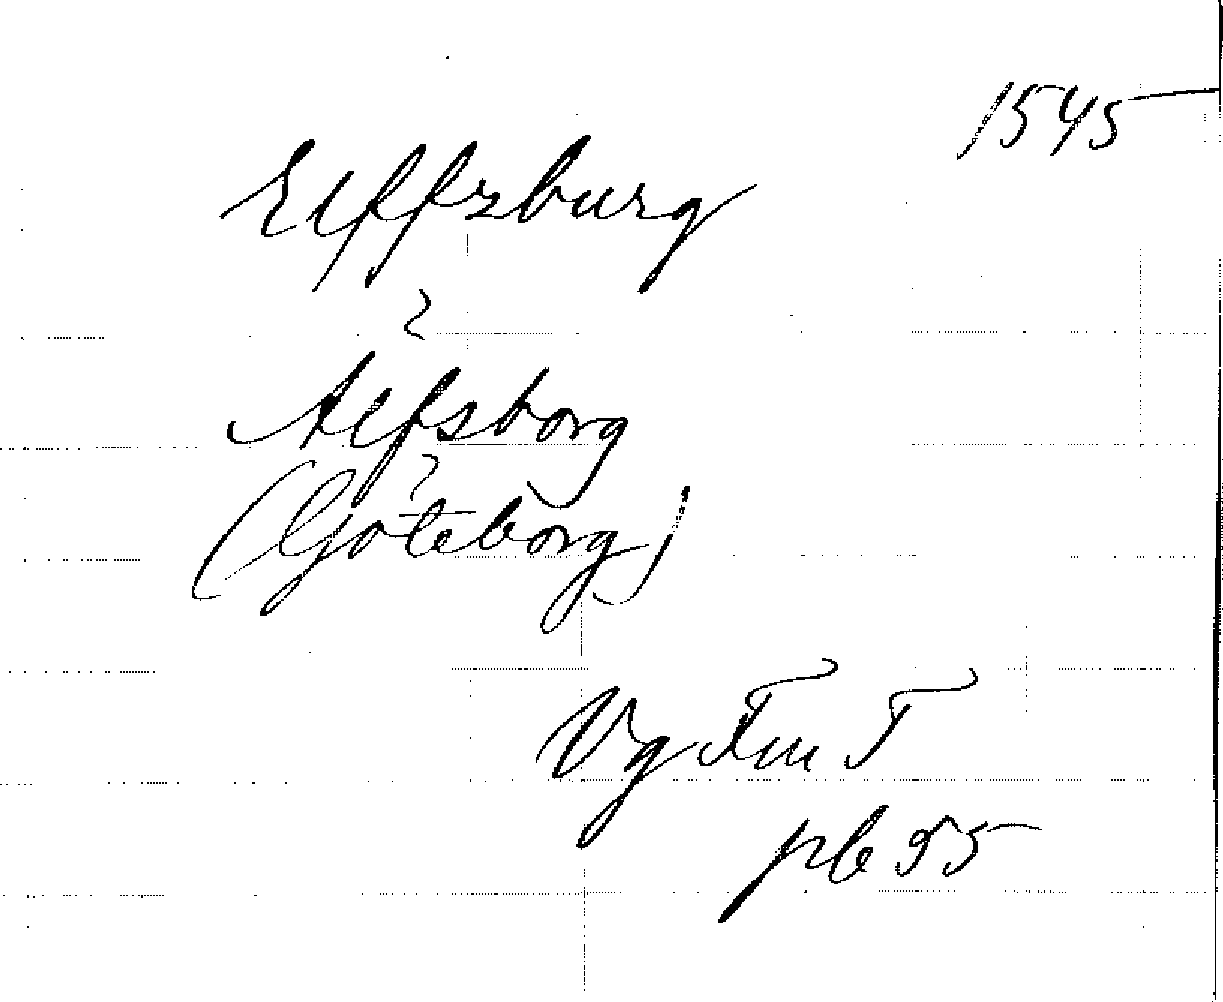 1545
Elffzburg
?
Alfsborg
?
(Göteborg)
Vg Fm T
pb 95